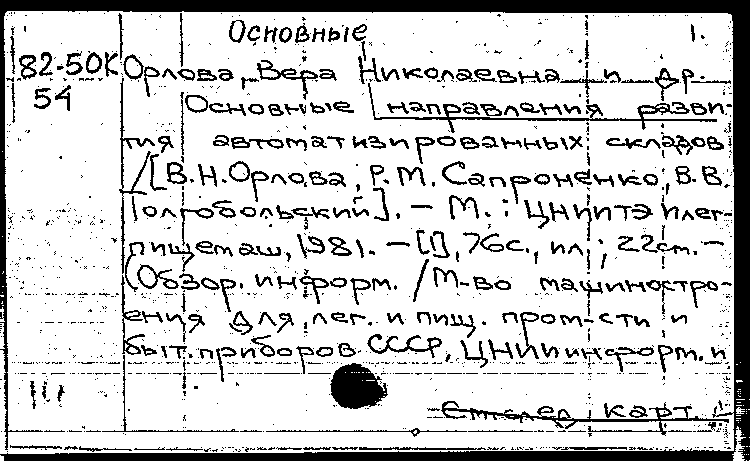 Основные 1.
82-50К Орлова, Вера Николаевна и др.
54 Основные направления разви-
тия автоматизированных складов
/[В.Н.Орлова, Р.М. Сапроненко, В.В.
Толгобольский]. – М.: ЦНИИТЭИлег-
пищемаш, 1981. – [1], 76с., ил.; 22см. –
(Обзор. информ. /М-во машинострo-
ения для лег. и пищ. пром-сти и
быт. приборов СССР, ЦНИИинформ. и
см. след. карт.